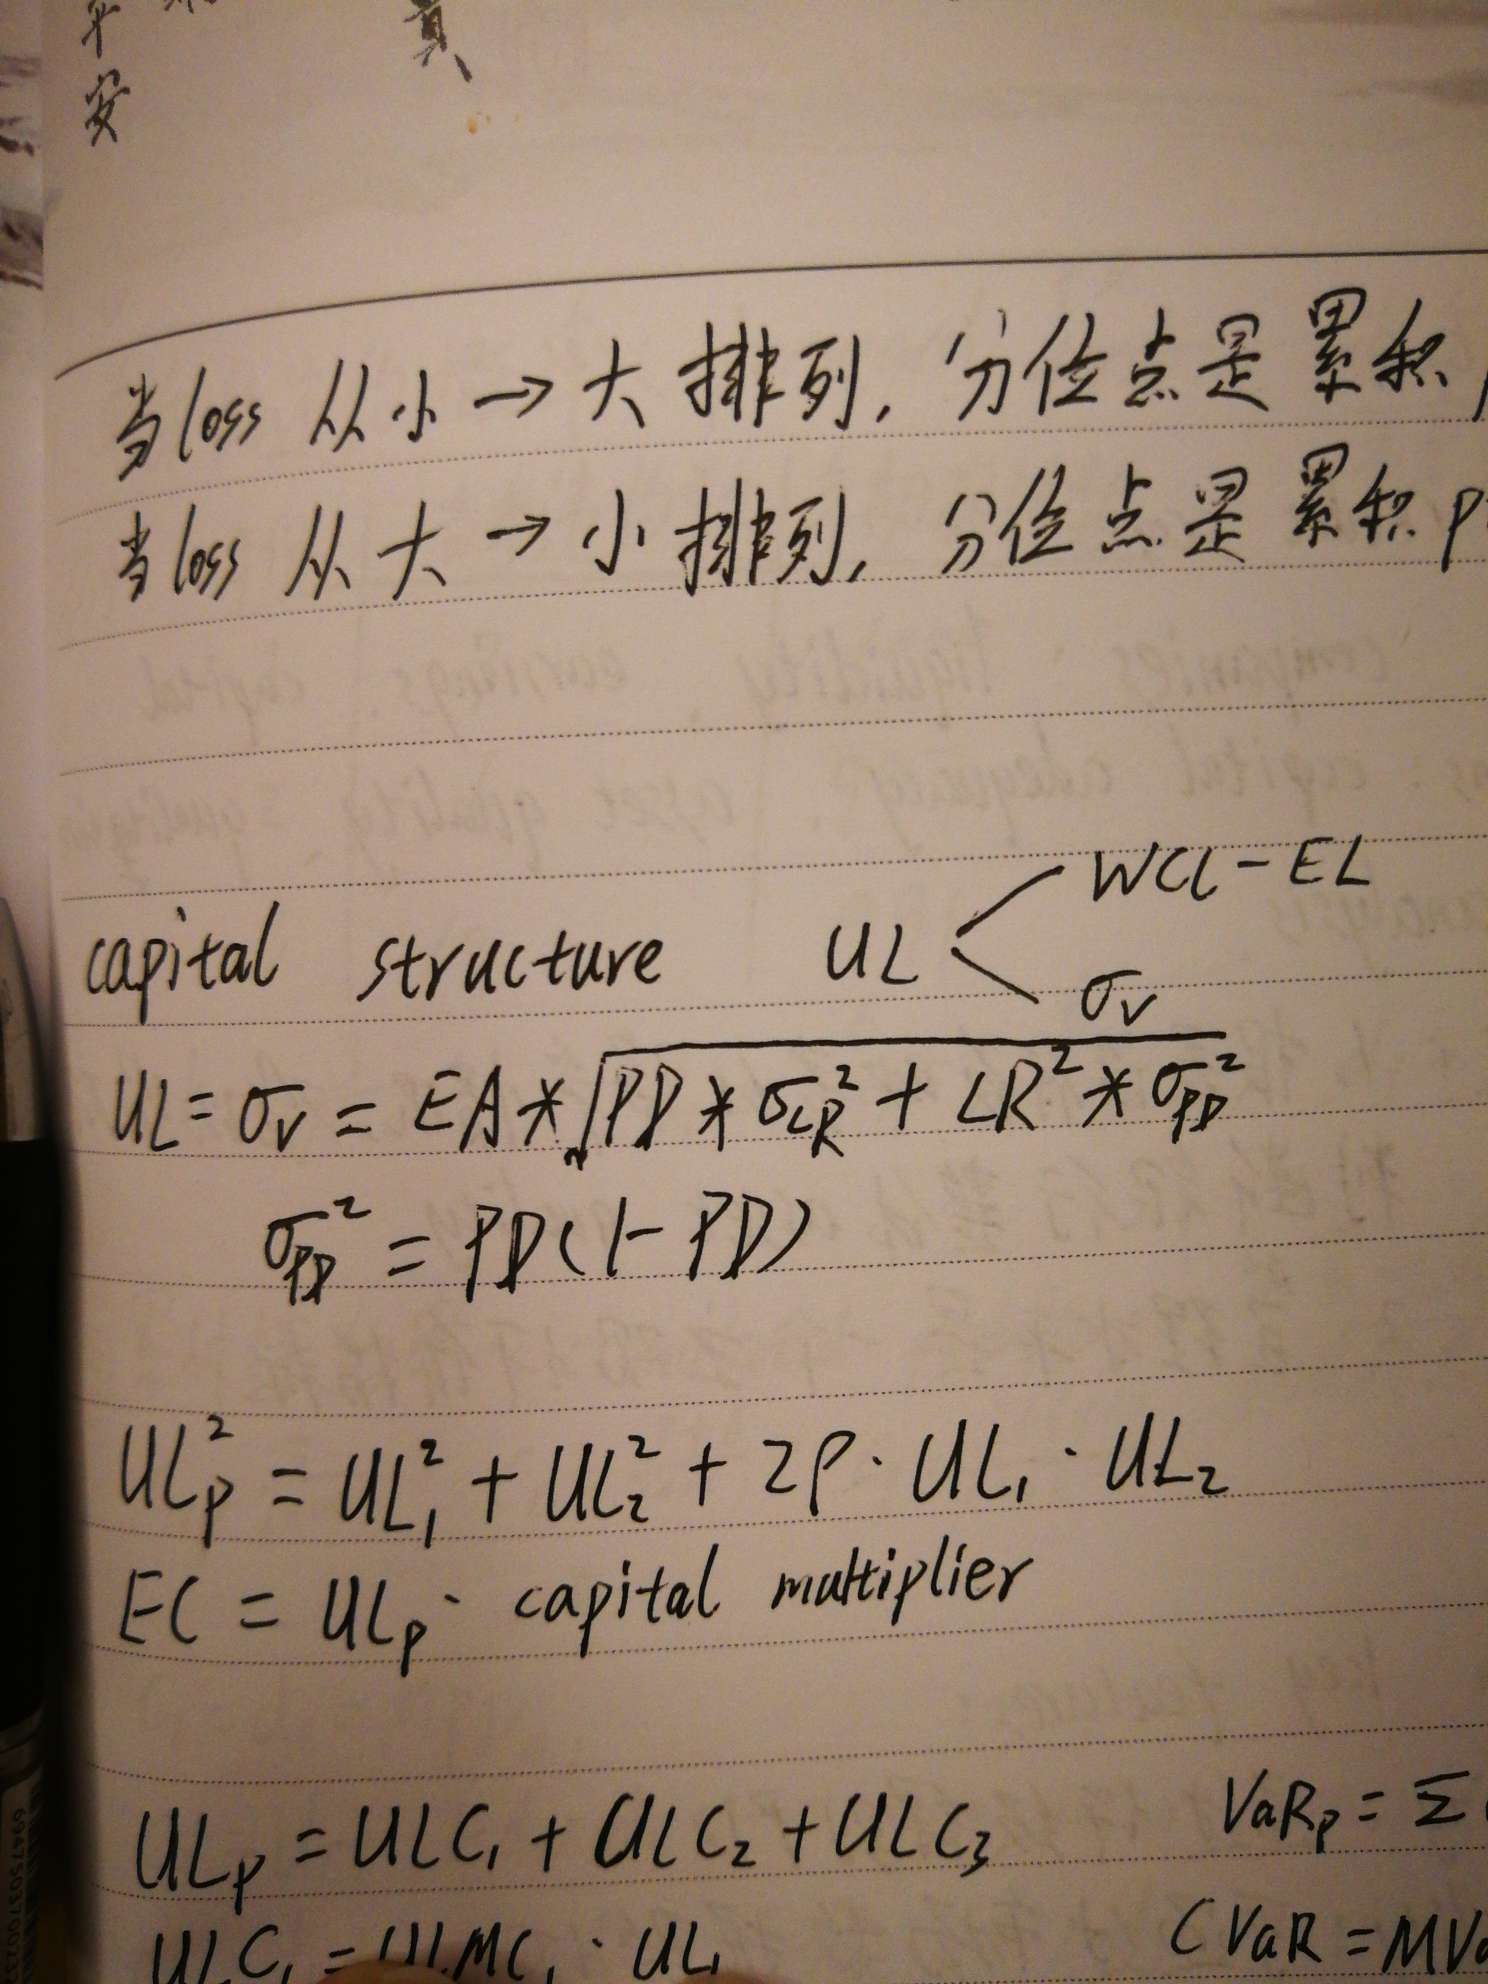 平安
贵
当loss 从小→大排列, 分位点是累积
当loss 从大→小排列, 分位点是累积 p
capital structure UL < WCL-EL
σ_v
UL = σ_v = EA * √(PD * σ_LR² + LR² * σ_PD²)
σ_PD² = PD(1-PD)
UL_P² = UL₁² + UL₂² + 2ρ · UL₁ · UL₂
EC = UL_P · capital multiplier
VaR_P = Σ
UL_P = ULC₁ + ULC₂ + ULC₃
ULC₁ = ULMC₁ · UL₁
CVaR = MVa